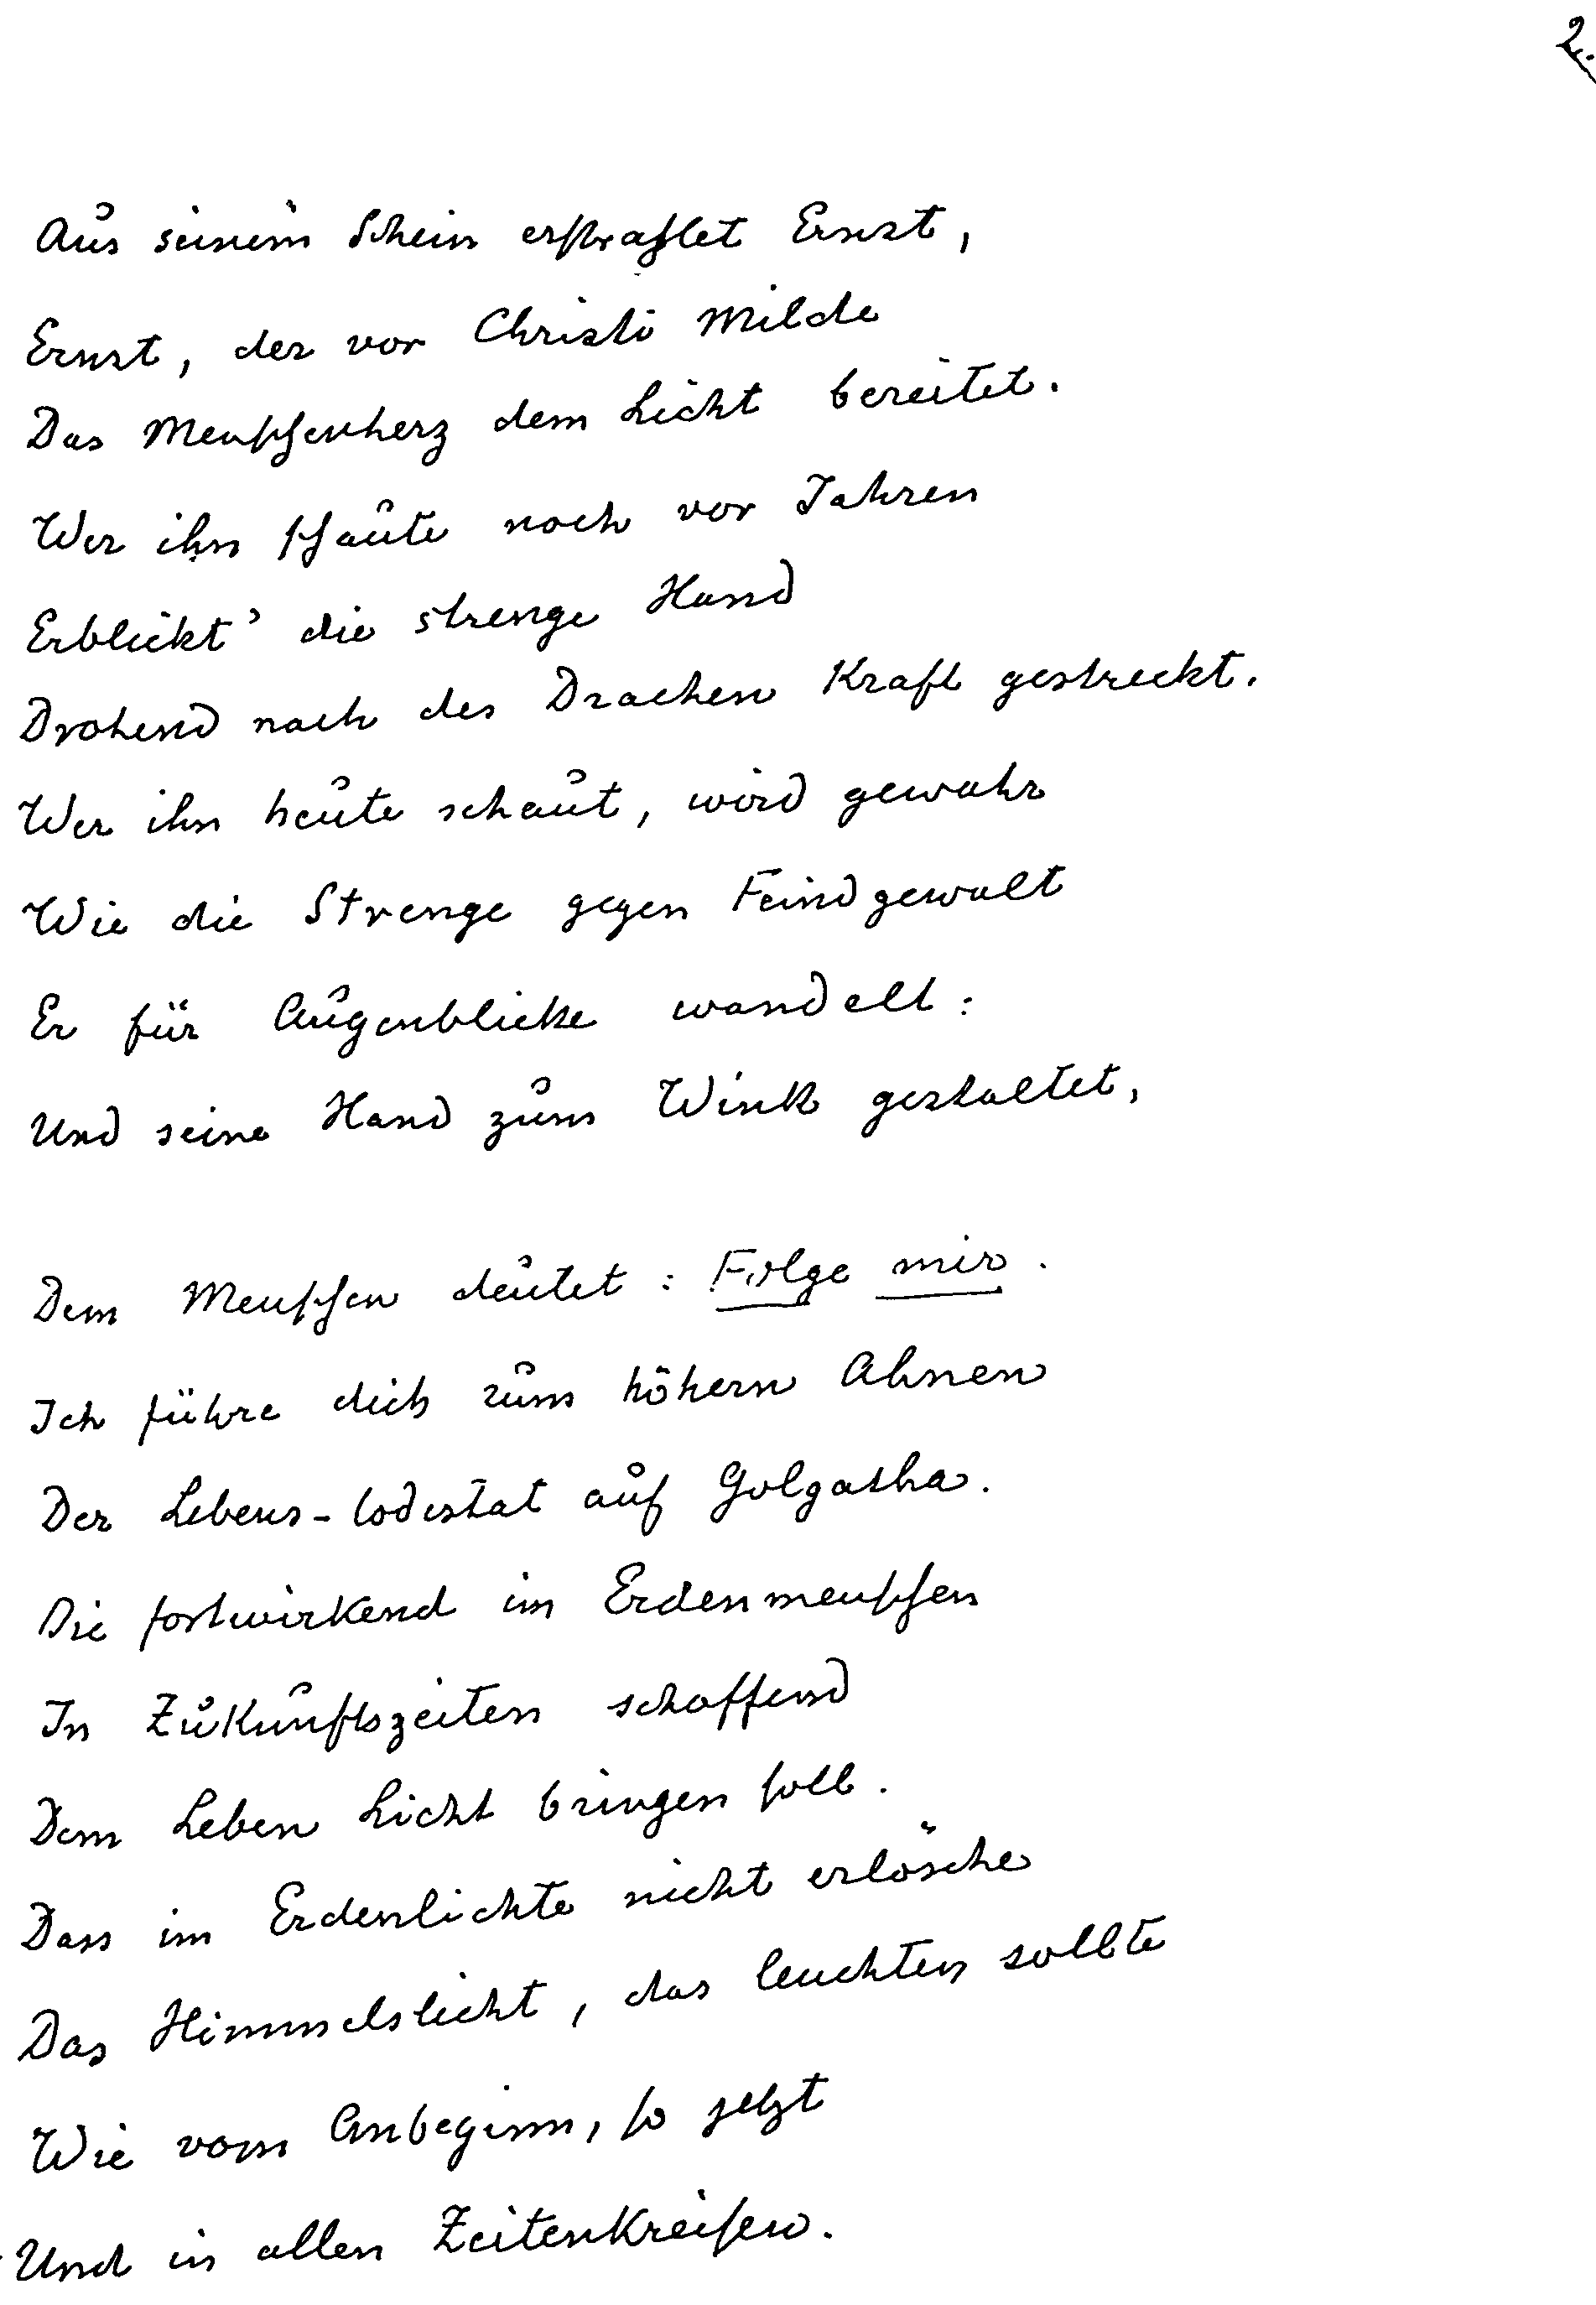 2.
Aus seinem Schein erstrahlet Ernst,
Ernst, der vor Christi Milde
Das Menschenherz dem Licht bereitet.
Wer ihn schaute noch vor Jahren
Erblickt' die strenge Hand
Drohend nach des Drachen Kraft gestreckt.
Wer ihn heute schaut, wird gewahr
Wie die Strenge gegen Feindgewalt
Er für Augenblicke wandelt:
Und seine Hand zum Wink gestaltet,
Dem Menschen deutet: Folge mir.
Ich führe dich zum höhern Ahnen
Der Lebens-Todestat auf Golgatha.
Die fortwirkend im Erdenmenschen
In Zukunftszeiten schaffend
Dem Leben Licht bringen soll.
Dass im Erdenlichte nicht erlösche
Das Himmelslicht, das leuchten sollte
Wie vom Anbeginn, so jetzt
Und in allen Zeitenkreisen.